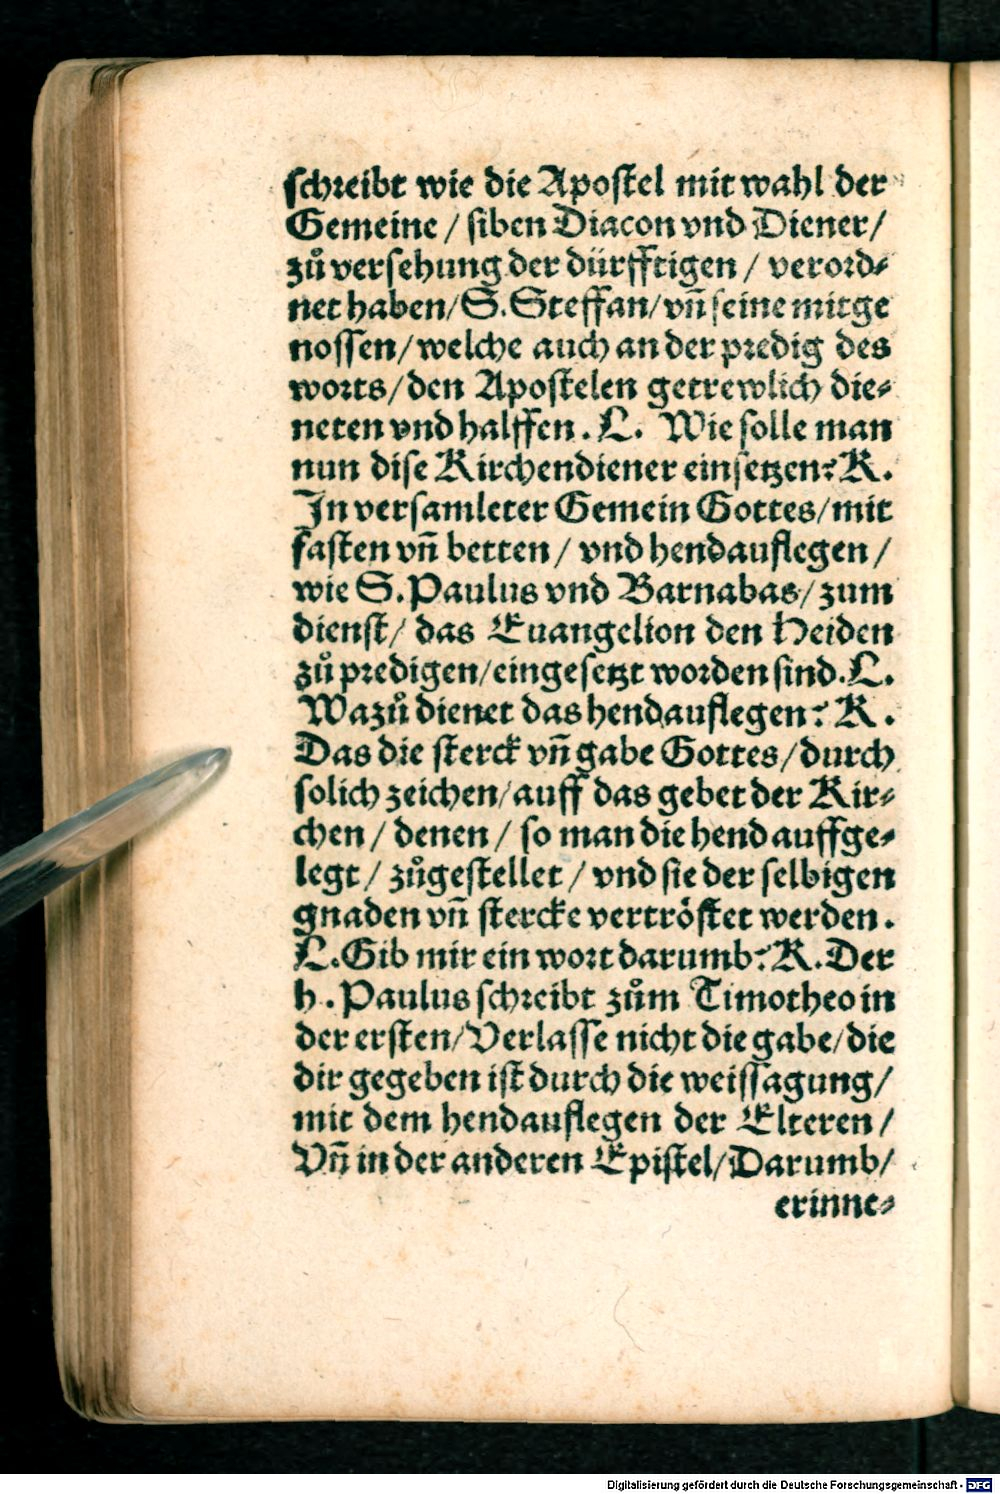 schreibt wie die Apostel mit wahl der
Gemeine / siben Diacon vnd Diener /
zů versehung der dürfftigen / verord⸗
net haben / S. Steffan / vñ seine mitge
nossen / welche auch an der predig des
worts / den Apostelen getrewlich die⸗
neten vnd halffen. L. Wie solle man
nun dise Kirchendiener einsetzen? K.
In versamleter Gemein Gottes / mit
fasten vñ betten / vnd hendauflegen /
wie S. Paulus vnd Barnabas / zum
dienst / das Euangelion den Heiden
zů predigen / eingesetzt worden sind. L.
Wazů dienet das hendauflegen? K.
Das die sterck vñ gabe Gottes / durch
solich zeichen / auff das gebet der Kir⸗
chen / denen / so man die hend auffge⸗
legt / zůgestellet / vnd sie der selbigen
gnaden vñ stercke vertröstet werden.
L. Gib mir ein wort darumb? K. Der
h. Paulus schreibt zům Timotheo in
der ersten / Verlasse nicht die gabe / die
dir gegeben ist durch die weissagung /
mit dem hendauflegen der Elteren /
Vñ in der anderen Epistel / Darumb /
erinne⸗
Digitalisierung gefördert durch die Deutsche Forschungsgemeinschaft - DFG